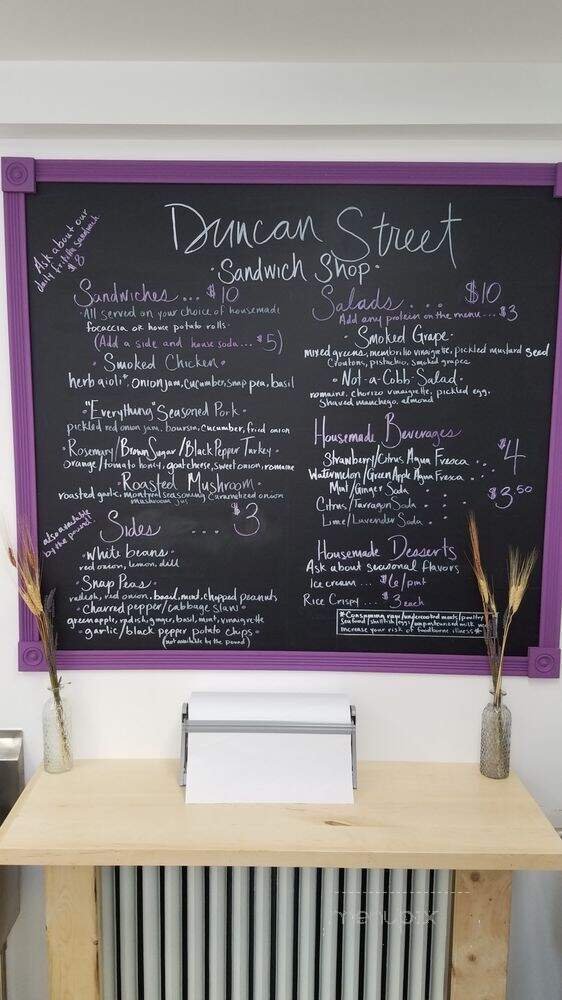 Duncan Street
·Sandwich Shop·
Ask about our
daily fritatta sandwich
$8
Sandwiches... $10
·All served on your choice of housemade
focaccia or house potato rolls·
(Add a side and house soda... $5)
·Smoked Chicken·
herb aioli, onion jam, cucumber, snap pea, basil
·"Everything" Seasoned Pork·
pickled red onion jam, boursin, cucumber, fried onion
·Rosemary/Brown Sugar/Black Pepper Turkey·
orange/tomato honey, goat cheese, sweet onion, romaine
·Roasted Mushroom·
roasted garlic, montreal seasoning, caramelized onion
mushroom jus
also available
by the pound!
Sides ... $3
·White beans·
red onion, lemon, dill
·Snap Peas·
radish, red onion, basil, mint, chopped peanuts
·charred pepper/cabbage slaw·
green apple, radish, ginger, basil, mint, vinaigrette
·garlic/black pepper potato chips·
(not available by the pound)
Salads... $10
Add any protein on the menu... $3
·Smoked Grape·
mixed greens, membrillo vinaigrette, pickled mustard seed
croutons, pistachio, smoked grapes
·Not-a-Cobb Salad·
romaine, chorizo vinaigrette, pickled egg,
shaved manchego, almond
Housemade Beverages
Strawberry/Citrus Agua Fresca . . $4
Watermelon/Green Apple Agua Fresca . .
Mint/Ginger Soda . . $3.50
Citrus/Tarragon Soda . .
Lime/Lavender Soda . .
Housemade Desserts
Ask about seasonal flavors
Ice cream... $6/pint
Rice Crispy... $3 each
*Consuming raw/undercooked meats/poultry
seafood/shellfish/eggs/unpasteurized milk may
increase your risk of foodborne illness*
menupix